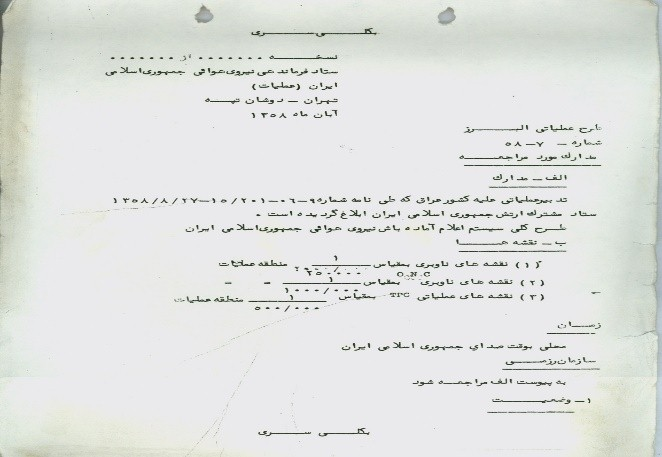 بکلی سری
نسخه ....... از .......
ستاد فرماندهی نیروی هوائی جمهوری اسلامی
ایران (عملیات)
تهران - دوشان تپه
آبان ماه ۱۳۵۸
طرح عملیاتی البرز
شماره - ۷ - ۵۸
مدارک مورد مراجعه
الف - مدارک
تدبیر عملیاتی علیه کشور عراق که طی نامه شماره ۹-۰۶-۲۰۱/۱۵-۱۳۵۸/۸/۲۷
ستاد مشترک ارتش جمهوری اسلامی ایران ابلاغ گردیده است .
طرح کلی سیستم اعلام آماده باش نیروی هوائی جمهوری اسلامی ایران
ب - نقشه ها
(۱) نقشه های ناوبری بمقیاس ۱ / ۲۵۰/۰۰۰ منطقه عملیات
(۲) نقشه های ناوبری O.N.C بمقیاس ۱ / ۱۰۰۰/۰۰۰ - -
(۳) نقشه های عملیاتی TPC بمقیاس ۱ / ۵۰۰/۰۰۰ منطقه عملیات
زمان
محلی بوقت صدای جمهوری اسلامی ایران
سازمان رزمی
به پیوست الف مراجعه شود
۱- وضعیت
بکلی سری